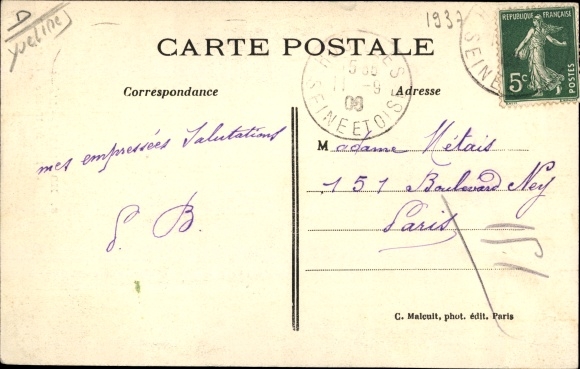 D
Yvelines
1937
CARTE POSTALE
RÉPUBLIQUE FRANÇAISE
5c
POSTES
SEINE ET OISE
11 - 9
SEINE
Correspondance
Adresse
mes empressées Salutations
B.
Madame Métais
151 Boulevard Ney
Paris
C. Malcuit, phot. édit. Paris